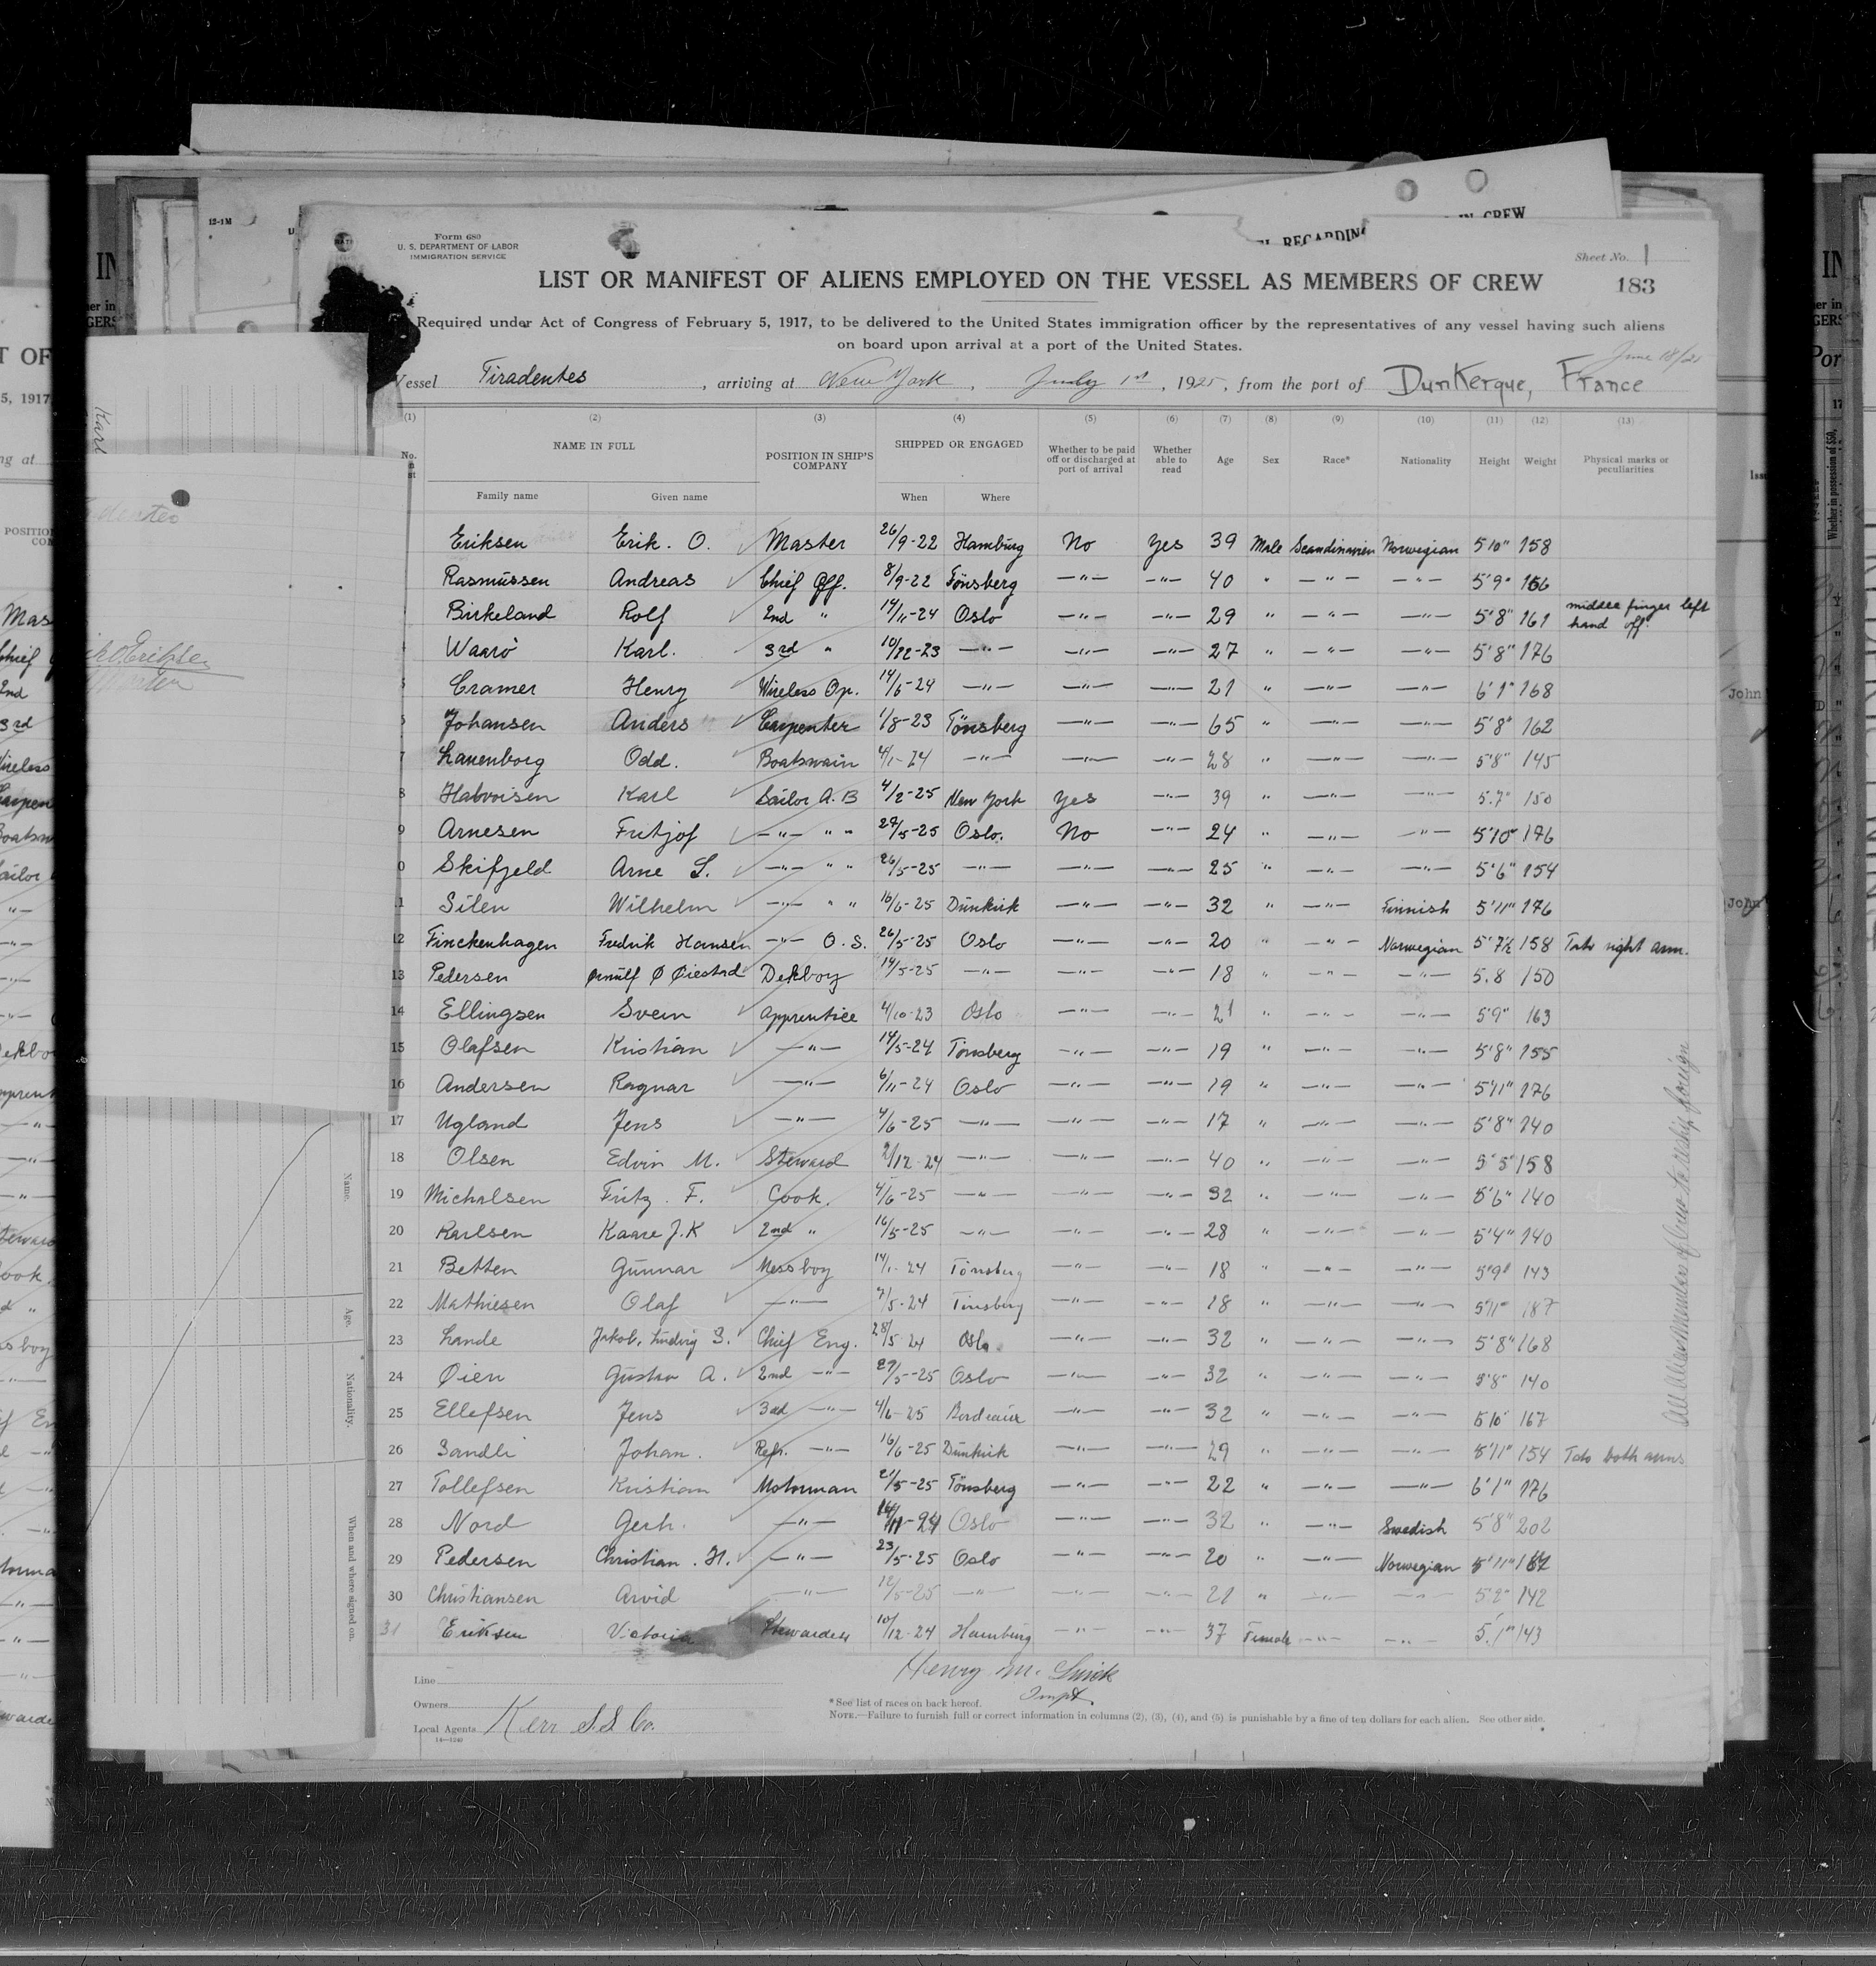 Form 689
U. S. DEPARTMENT OF LABOR
IMMIGRATION SERVICE
Sheet No. 1
LIST OR MANIFEST OF ALIENS EMPLOYED ON THE VESSEL AS MEMBERS OF CREW
183
Required under Act of Congress of February 5, 1917, to be delivered to the United States immigration officer by the representatives of any vessel having such aliens
on board upon arrival at a port of the United States.
Vessel Tiradentes, arriving at New York, July 1st, 1925, from the port of Dunkerque, France
(1) (2) (3) (4) (5) (6) (7) (8) (9) (10) (11) (12) (13)
No. NAME IN FULL POSITION IN SHIP'S COMPANY SHIPPED OR ENGAGED Whether to be paid off or discharged at port of arrival Whether able to read Age Sex Race* Nationality Height Weight Physical marks or peculiarities
Family name Given name When Where
Eriksen Erik. O. Master 26/9-22 Hamburg No Yes 39 Male Scandinavien Norwegian 5'10" 158
Rasmussen Andreas Chief Off. 8/9-22 Tönsberg —"— —"— 40 " —"— —"— 5'9" 166
Birkeland Rolf 2nd " 14/11-24 Oslo —"— —"— 29 " —"— —"— 5'8" 161 middle finger left hand off.
Waarö Karl. 3rd " 10/12-23 —"— —"— —"— 27 " —"— —"— 5'8" 176
Cramer Henry Wireless Op. 14/6-24 —"— —"— —"— 21 " —"— —"— 6'1" 168
Johansen Anders Carpenter 1/8-23 Tönsberg —"— —"— 65 " —"— —"— 5'8" 162
7 Lauenborg Odd. Boatswain 4/1-24 —"— —"— —"— 28 " —"— —"— 5'8" 145
8 Halvorsen Karl Sailor A.B 4/2-25 New York Yes —"— 39 " —"— —"— 5.7" 150
9 Arnesen Fritjof —"— " " 27/5-25 Oslo. No —"— 24 " —"— —"— 5'10" 176
0 Skifjeld Arne S. —"— " " 26/5-25 —"— —"— —"— 25 " —"— —"— 5'6" 154
11 Silen Wilhelm —"— " " 16/6-25 Dünkirk —"— —"— 32 " —"— Finnish 5'11" 176
12 Finckenhagen Fredrik Hansen —"— O.S. 26/5-25 Oslo —"— —"— 20 " —"— Norwegian 5'7½ 158 Tato right arm.
13 Pedersen Ørnulf Ø Øiestad Dekboy 14/5-25 —"— —"— —"— 18 " —"— —"— 5.8 150
14 Ellingsen Svein Apprentice 4/10-23 Oslo —"— —"— 21 " —"— —"— 5'9" 163
15 Olafsen Kristian —"— 14/5-24 Tönsberg —"— —"— 19 " —"— —"— 5'8" 155
16 Andersen Ragnar —"— 6/11-24 Oslo —"— —"— 19 " —"— —"— 5'11" 176
17 Ugland Jens —"— 4/6-25 —"— —"— —"— 17 " —"— —"— 5'8" 140
18 Olsen Edvin M. Steward 2/12-24 —"— —"— —"— 40 " —"— —"— 5'5" 158
19 Michalsen Fritz. F. Cook. 4/6-25 —"— —"— —"— 32 " —"— —"— 5'6" 140
20 Karlsen Kaare J.K 2nd " 16/5-25 —"— —"— —"— 28 " —"— —"— 5'4" 140
21 Betten Gunnar Messboy 14/1-24 Tönsberg —"— —"— 18 " —"— —"— 5'9" 143
22 Mathiesen Olaf —"— 7/5-24 Tönsberg —"— —"— 18 " —"— —"— 5'11" 187
23 Lande Jakob, Ludvig S. Chief Eng. 28/5 24 Oslo. —"— —"— 32 " —"— —"— 5'8" 168
24 Øien Gustav A. 2nd —"— 27/5-25 Oslo —"— —"— 32 " —"— —"— 5'8" 140
25 Ellefsen Jens 3rd —"— 4/6-25 Bordeaux —"— —"— 32 " —"— —"— 5'10" 167
26 Sandli Johan. Refr. —"— 16/6-25 Dünkirk —"— —"— 29 " —"— —"— 5'11" 154 Tato both arms
27 Tollefsen Kristian Motorman 21/5-25 Tönsberg —"— —"— 22 " —"— —"— 6'1" 176
28 Nord Gerh. —"— 14/11-24 Oslo —"— —"— 32 " —"— Swedish 5'8" 202
29 Pedersen Christian. H. —"— 23/5-25 Oslo —"— —"— 20 " —"— Norwegian 5'11"
30 Christiansen Arvid —"— 12/5-25 —"— —"— —"— 21 " —"— —"— 5'2" 142
31 Eriksen Victoria Stewardess 10/12-24 Hamburg —"— —"— 37 Female —"— —"— 5'.1" 143
Line
Owners
Local Agents Kerr S.S. Co.
14—1240
Henry M.
*See list of races on back hereof.
NOTE.—Failure to furnish full or correct information in columns (2), (3), (4), and (5) is punishable by a fine of ten dollars for each alien. See other side.
All alien members of crew to reship foreign
Name.
Age.
Nationality.
When and where signed on.
12-1M
John
John